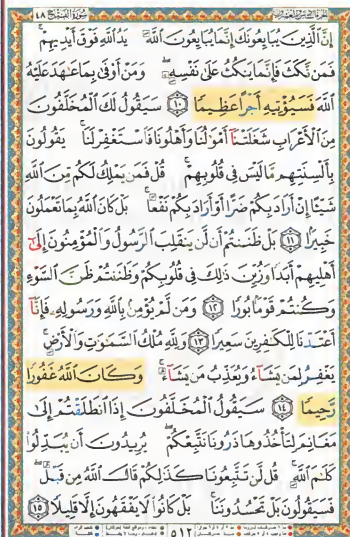 سورة الفتح ٤٨
إِنَّ ٱلَّذِينَ يُبَايِعُونَكَ إِنَّمَا يُبَايِعُونَ ٱللَّهَ يَدُ ٱللَّهِ فَوْقَ أَيْدِيهِمْ
فَمَن نَّكَثَ فَإِنَّمَا يَنكُثُ عَلَىٰ نَفْسِهِۦ وَمَنْ أَوْفَىٰ بِمَا عَـٰهَدَ عَلَيْهُ
ٱللَّهَ فَسَيُؤْتِيهِ أَجْرًا عَظِيمًا ١٠ سَيَقُولُ لَكَ ٱلْمُخَلَّفُونَ
مِنَ ٱلْأَعْرَابِ شَغَلَتْنَآ أَمْوَٰلُنَا وَأَهْلُونَا فَٱسْتَغْفِرْ لَنَا يَقُولُونَ
بِأَلْسِنَتِهِم مَّا لَيْسَ فِى قُلُوبِهِمْ قُلْ فَمَن يَمْلِكُ لَكُم مِّنَ ٱللَّهِ
شَيْـًٔا إِنْ أَرَادَ بِكُمْ ضَرًّا أَوْ أَرَادَ بِكُمْ نَفْعًۢا بَلْ كَانَ ٱللَّهُ بِمَا تَعْمَلُونَ
خَبِيرًۢا ١١ بَلْ ظَنَنتُمْ أَن لَّن يَنقَلِبَ ٱلرَّسُولُ وَٱلْمُؤْمِنُونَ إِلَىٰٓ
أَهْلِيهِمْ أَبَدًا وَزُيِّنَ ذَٰلِكَ فِى قُلُوبِكُمْ وَظَنَنتُمْ ظَنَّ ٱلسَّوْءِ
وَكُنتُمْ قَوْمًۢا بُورًا ١٢ وَمَن لَّمْ يُؤْمِنۢ بِٱللَّهِ وَرَسُولِهِۦ فَإِنَّآ
أَعْتَدْنَا لِلْكَـٰفِرِينَ سَعِيرًا ١٣ وَلِلَّهِ مُلْكُ ٱلسَّمَـٰوَٰتِ وَٱلْأَرْضِ
يَغْفِرُ لِمَن يَشَآءُ وَيُعَذِّبُ مَن يَشَآءُ وَكَانَ ٱللَّهُ غَفُورًا
رَّحِيمًا ١٤ سَيَقُولُ ٱلْمُخَلَّفُونَ إِذَا ٱنطَلَقْتُمْ إِلَىٰ
مَغَانِمَ لِتَأْخُذُوهَا ذَرُونَا نَتَّبِعْكُمْ يُرِيدُونَ أَن يُبَدِّلُوا۟
كَلَـٰمَ ٱللَّهِ قُل لَّن تَتَّبِعُونَا كَذَٰلِكُمْ قَالَ ٱللَّهُ مِن قَبْلُ
فَسَيَقُولُونَ بَلْ تَحْسُدُونَنَا بَلْ كَانُوا۟ لَا يَفْقَهُونَ إِلَّا قَلِيلًا ١٥
٥١٢